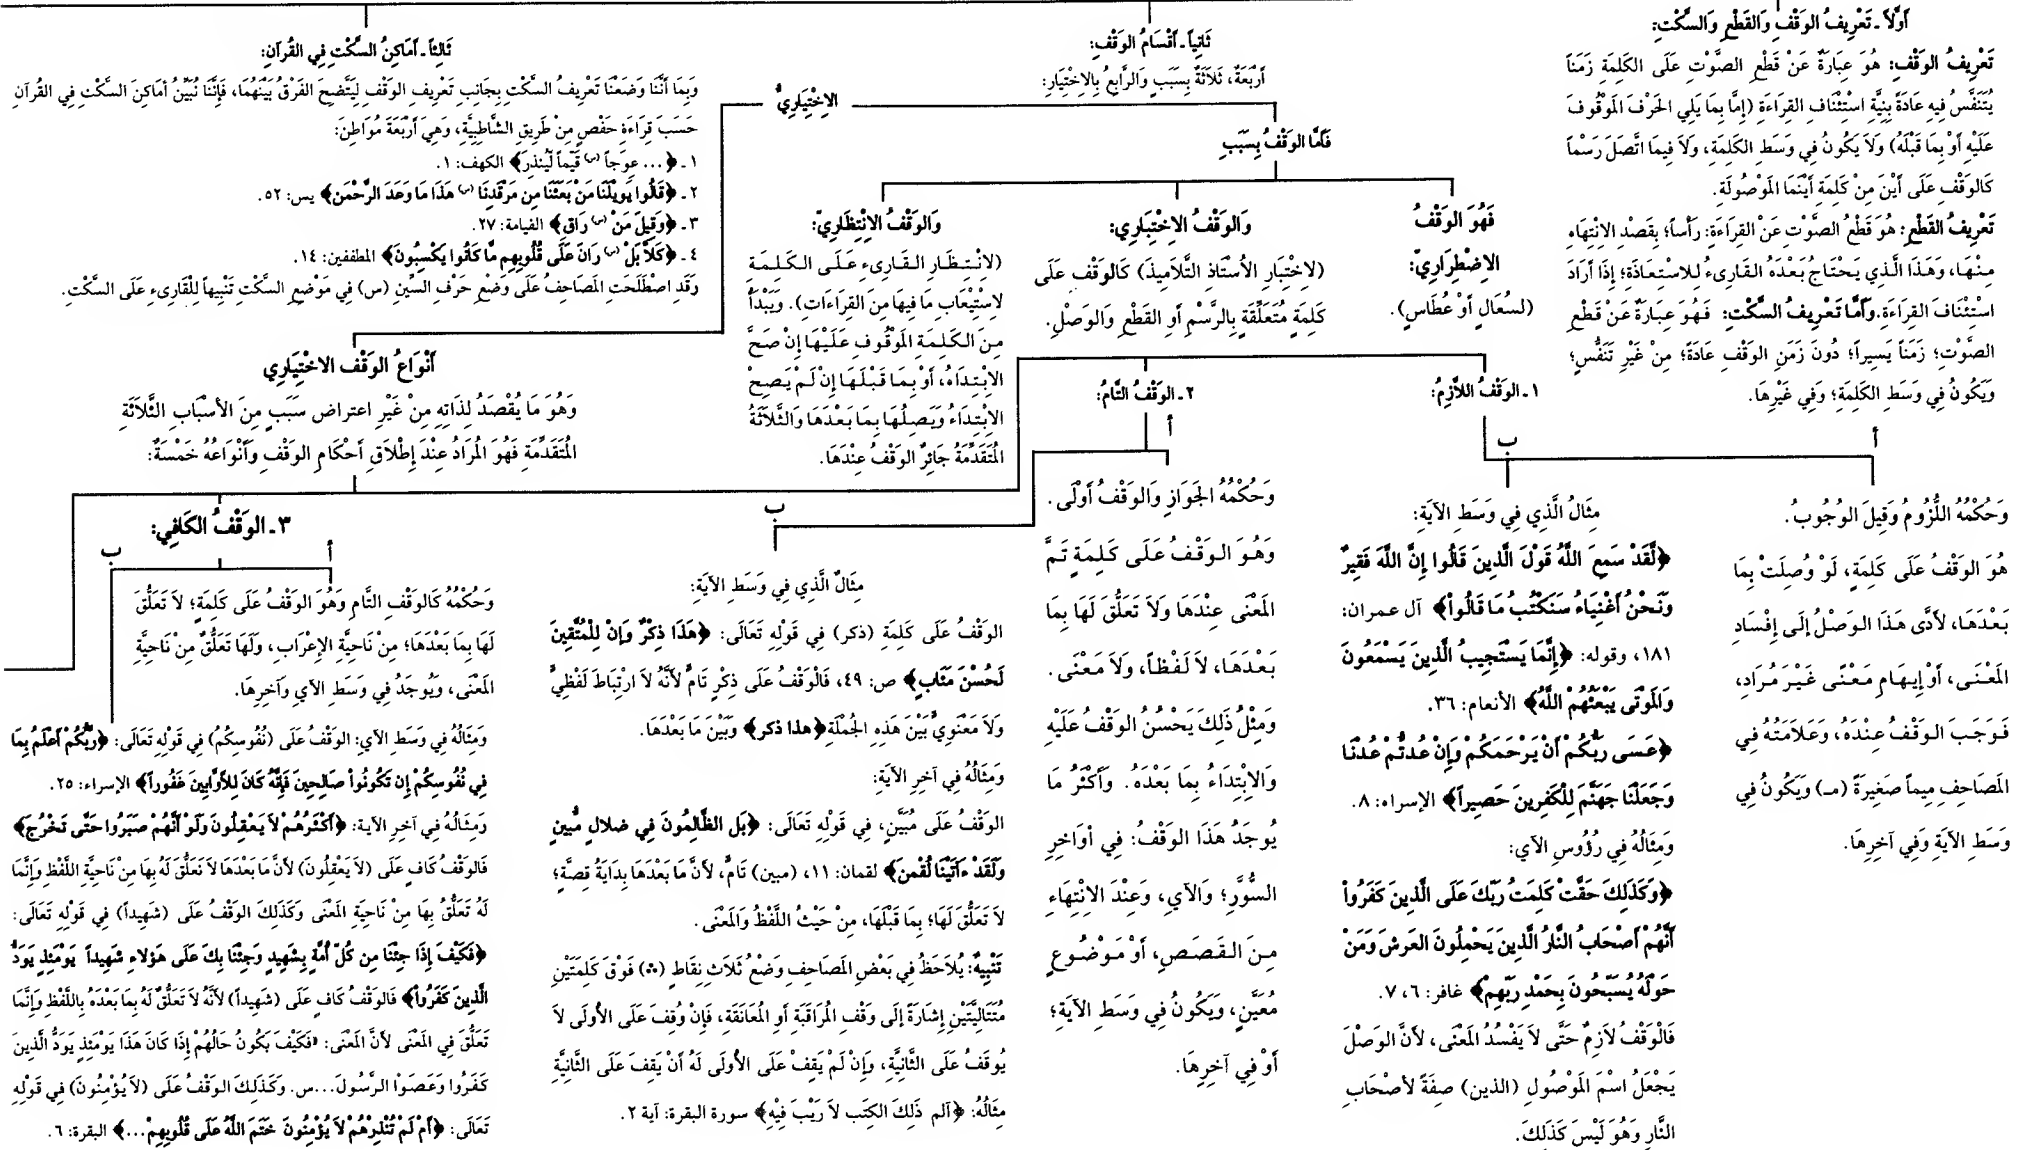 أَوَّلاً ـ تَعْرِيفُ الوَقْفِ وَالقَطْعِ وَالسَّكْتِ:
تَعْرِيفُ الوَقْفِ: هُوَ عِبَارَةٌ عَنْ قَطْعِ الصَّوْتِ عَلَى الكَلِمَةِ زَمَناً
يُتَنَفَّسُ فِيهِ عَادَةً بِنِيَّةِ اسْتِئْنَافِ القِرَاءَةِ (إِمَّا بِمَا يَلِي الحَرْفَ المَوْقُوفَ
عَلَيْهِ أَوْ بِمَا قَبْلَهُ) وَلاَ يَكُونُ فِي وَسَطِ الكَلِمَةِ، وَلاَ فِيمَا اتَّصَلَ رَسْماً
كَالوَقْفِ عَلَى أَيْنَ مِنْ كَلِمَةِ أَيْنَمَا المَوْصُولَةِ.
تَعْرِيفُ القَطْعِ: هُوَ قَطْعُ الصَّوْتِ عَنْ القِرَاءَةِ: رَأْساً؛ بِقَصْدِ الاِنْتِهَاءِ
مِنْهَا، وَهَذَا الَّذِي يَحْتَاجُ بَعْدَهُ القَارِىءُ لِلاِسْتِعَاذَةِ؛ إِذَا أَرَادَ
اسْتِئْنَافَ القِرَاءَةِ. وَأَمَّا تَعْرِيفُ السَّكْتِ: فَهُوَ عِبَارَةٌ عَنْ قَطْعِ
الصَّوْتِ؛ زَمَناً يَسِيراً؛ دُونَ زَمَنِ الوَقْفِ عَادَةً؛ مِنْ غَيْرِ تَنَفُّسٍ؛
وَيَكُونُ فِي وَسَطِ الكَلِمَةِ؛ وَفِي غَيْرِهَا.
ثَانِياً ـ أَقْسَامُ الوَقْفِ:
أَرْبَعَةٌ، ثَلاَثَةٌ بِسَبَبٍ وَالرَّابِعُ بِالاِخْتِيَارِ:
الاِخْتِيَارِيُّ
فَأَمَّا الوَقْفُ بِسَبَبِ
فَهُوَ الوَقْفُ
الاِضْطِرَارِيّ:
(لسُعَالٍ أَوْ عُطَاسٍ).
وَالوَقْفُ الاِخْتِبَارِي:
(لاِخْتِبَارِ الأُسْتَاذِ التَّلاَمِيذَ) كَالوَقْفِ عَلَى
كَلِمَةٍ مُتَعَلِّقَةٍ بِالرَّسْمِ أَوِ القَطْعِ وَالوَصْلِ.
وَالوَقْفُ الاِنْتِظَارِيّ:
(لاِنْتِظَارِ القَارِىءِ عَلَى الكَلِمَةِ
لاِسْتِيْعَابِ مَا فِيهَا مِنَ القِرَاءَاتِ). وَيَبْدَأُ
مِنَ الكَلِمَةِ المَوْقُوفِ عَلَيْهَا إِنْ صَحَّ
الاِبْتِدَاءُ، أَوْ بِمَا قَبْلَهَا إِنْ لَمْ يَصِحْ
الاِبْتِدَاءُ وَيَصِلُهَا بِمَا بَعْدَهَا وَالثَّلاَثَةُ
المُتَقَدِّمَةُ جَائِزٌ الوَقْفُ عِنْدَهَا.
ثَالِثاً ـ أَمَاكِنُ السَّكْتِ فِي القُرآنِ:
وَبِمَا أَنَّنَا وَضَعْنَا تَعْرِيفُ السَّكْتِ بِجَانِبِ تَعْرِيفِ الوَقْفِ لِيَتَّضِحَ الفَرْقُ بَيْنَهُمَا، فَإِنَّنَا نُبَيِّنُ أَمَاكِنَ السَّكْتِ فِي القُرآنِ
حَسَبَ قِرَاءَةِ حَفْصٍ مِنْ طَرِيقِ الشَّاطِبِيَّةِ، وَهِيَ أَرْبَعَةَ مُوَاطِنَ:
١ ـ ﴿... عِوَجاً (س) قَيِّماً لِّيُنذِرَ﴾ الكهف: ١.
٢ ـ ﴿قَالُوا يَوَيْلَنَا مَنْ بَعَثَنَا مِن مَرْقَدِنَا (س) هَذَا مَا وَعَدَ الرَّحْمَن﴾ يس: ٥٢.
٣ ـ ﴿وَقِيلَ مَنْ (س) رَاقٍ﴾ القيامة: ٢٧.
٤ ـ ﴿كَلاَّ بَلْ (س) رَانَ عَلَى قُلُوبِهِم مَّا كَانُوا يَكْسِبُونَ﴾ المطففين: ١٤.
وَقَدِ اصْطَلَحَتِ المَصَاحِفُ عَلَى وَضْعِ حَرْفِ السِّينِ (س) فِي مَوْضِعِ السَّكْتِ تَنْبِيهاً لِلْقَارِىءِ عَلَى السَّكْتِ.
أَنْوَاعُ الوَقْفِ الاخْتِيَارِي
وَهُوَ مَا يُقْصَدُ لِذَاتِهِ مِنْ غَيْرِ اعتراض سَبَبٍ مِنَ الأسْبَابِ الثَّلاَثَةِ
المُتَقَدِّمَةِ فَهُوَ المُرَادُ عِنْدَ إِطْلاَقِ أَحْكَامِ الوَقْفِ وَأَنْوَاعُهُ خَمْسَةٌ:
١ ـ الوَقْفُ اللاَّزِمُ:
أ
ب
وَحُكْمُهُ اللُّزُومُ وَقِيلَ الوُجُوبُ.
هُوَ الوَقْفُ عَلَى كَلِمَةٍ، لَوْ وُصِلَتْ بِمَا
بَعْدَهَا، لأَدَّى هَذَا الوَصْلُ إِلَى إِفْسَادِ
المَعْنَى، أَوْ إِيهَامِ مَعْنًى غَيْرَ مُرَادٍ،
فَوَجَبَ الوَقْفُ عِنْدَهُ، وَعَلاَمَتُهُ فِي
المَصَاحِفِ مِيماً صَغِيرَةً (مـ) وَيَكُونُ فِي
وَسَطِ الآيَةِ وَفِي آخِرِهَا.
مِثَالُ الَّذِي فِي وَسَطِ الآيَةِ:
﴿لَّقَدْ سَمِعَ اللَّهُ قَوْلَ الَّذِينَ قَالُوا إِنَّ اللَّهَ فَقِيرٌ
وَنَحْنُ أَغْنِيَاءُ سَنَكْتُبُ مَا قَالُواْ﴾ آل عمران:
١٨١، وقوله: ﴿إِنَّمَا يَسْتَجِيبُ الَّذِينَ يَسْمَعُونَ
وَالمَوْتَى يَبْعَثُهُمُ اللَّهُ﴾ الأنعام: ٣٦.
﴿عَسَى رَبُّكُمْ أَنْ يَرْحَمَكُمْ وَإِنْ عُدتُّمْ عُدْنَا
وَجَعَلْنَا جَهَنَّمَ لِلْكَفِرِينَ حَصِيراً﴾ الإسراء: ٨.
وَمِثَالُهُ فِي رُؤُوسِ الآي:
﴿وَكَذَلِكَ حَقَّتْ كَلِمَتُ رَبِّكَ عَلَى الَّذِينَ كَفَرُواْ
أَنَّهُمْ أَصْحَابُ النَّارُ الَّذِينَ يَحْمِلُونَ العَرشَ وَمَنْ
حَوْلَهُ يُسَبِّحُونَ بِحَمْدِ رَبِّهِمْ﴾ غافر: ٦، ٧.
فَالْوَقْفُ لاَزِمٌ حَتَّى لاَ يَفْسُدُ المَعْنَى، لأَنَّ الوَصْلَ
يَجْعَلُ اسْمَ المَوْصُولِ (الذين) صِفَةً لأصْحَابِ
النَّارِ وَهُوَ لَيْسَ كَذَلِكَ.
٢ ـ الوَقْفُ التَّامُ:
أ
ب
وَحُكْمُهُ الجَوَازِ وَالوَقْفُ أَوْلَى.
وَهُوَ الوَقْفُ عَلَى كَلِمَةٍ تَمَّ
المَعْنَى عِنْدَهَا وَلاَ تَعَلُّقَ لَهَا بِمَا
بَعْدَهَا، لاَ لَفْظاً، وَلاَ مَعْنَى.
وَمِثْلُ ذَلِكَ يَحْسُنُ الوَقْفُ عَلَيْهِ
وَالاِبْتِدَاءُ بِمَا بَعْدَهُ. وَأَكْثَرُ مَا
يُوجَدُ هَذَا الوَقْفُ: فِي أَوَاخِرِ
السُّوَرِ؛ وَالآيِ، وَعِنْدَ الاِنْتِهَاءِ
مِنَ القَصَصِ، أَوْ مَوْضُوعٍ
مُعَيَّنٍ، وَيَكُونُ فِي وَسَطِ الآيَةِ؛
أَوْ فِي آخِرِهَا.
مِثَالٌ الَّذِي فِي وَسَطِ الآيَةِ:
الوَقْفُ عَلَى كَلِمَةِ (ذكر) فِي قَوْلِهِ تَعَالَى: ﴿هَذَا ذِكْرٌ وَإِنْ لِلْمُتَّقِينَ
لَحُسْنَ مَئَابٍ﴾ ص: ٤٩، فَالْوَقْفُ عَلَى ذِكْرٍ تَامٌ لأَنَّهُ لاَ ارْتِبَاطَ لَفْظِيٌّ
وَلاَ مَعْنَوِيٌّ بَيْنَ هَذِهِ الجُمْلَةِ ﴿هذا ذكر﴾ وَبَيْنَ مَا بَعْدَهَا.
وَمِثَالُهُ فِي آخِرِ الآيَةِ:
الوَقْفُ عَلَى مُبَيِّنٍ، فِي قَوْلِهِ تَعَالَى: ﴿بَل الظَّالِمُونَ فِي ضلالٍ مُّبين
وَلَقَدْ ءَاتَيْنَا لُقْمن﴾ لقمان: ١١، (مبين) تَامٌّ، لأَنَّ مَا بَعْدَهَا بِدَايَةُ قِصَّةٍ؛
لاَ تَعَلُّقَ لَهَا؛ بِمَا قَبْلَهَا، مِنْ حَيْثُ اللَّفْظُ وَالمَعْنَى.
تَنْبِيهٌ: يُلاَحَظُ فِي بَعْضِ المَصَاحِفِ وَضْعُ ثَلاَثِ نِقَاطٍ (∴) فَوْقَ كَلِمَتَيْنِ
مُتَتَالِيَّتَيْنِ إِشَارَةً إِلَى وَقْفِ المُرَاقَبَةِ أَوِ المُعَانَقَةِ، فَإِنْ وُقِفَ عَلَى الأُولَى لاَ
يُوقَفُ عَلَى الثَّانِيَّةِ، وَإِنْ لَمْ يَقِفْ عَلَى الأُولَى لَهُ أَنْ يَقِفَ عَلَى الثَّانِيَّةِ
مِثَالُهُ: ﴿آلم ذَلِكَ الكِتَب لاَ رَيْبَ فِيْهِ﴾ سورة البقرة: آية ٢.
٣ ـ الوَقْفُ الكَافِي:
أ
ب
وَحُكْمُهُ كَالوَقْفِ التَّامِ وَهُوَ الوَقْفُ عَلَى كَلِمَةٍ؛ لاَ تَعَلُّقَ
لَهَا بِمَا بَعْدَهَا؛ مِنْ نَاحِيَّةِ الإِعْرَابِ، وَلَهَا تَعَلُّقٌ مِنْ نَاحِيَّةِ
المَعْنَى، وَيُوجَدُ فِي وَسَطِ الآيِ وَآخِرِهَا.
وَمِثَالُهُ فِي وَسَطِ الآيِ: الوَقْفُ عَلَى (نُفُوسِكُمْ) فِي قَوْلِهِ تَعَالَى: ﴿رَبُّكُمْ أَعْلَمُ بِمَا
فِي نُفُوسِكُمْ إِن تَكُونُواْ صَالِحِينَ فَإِنَّهُ كَانَ لِلأَوَّابِينَ غَفُوراً﴾ الإسراء: ٢٥.
وَمِثَالُهُ فِي آخِرِ الآيَةِ: ﴿أَكْثَرُهُمْ لاَ يَعْقِلُونَ وَلَوْ أَنَّهُمْ صَبَرُوا حَتَّى تَخْرُجَ﴾
فَالوَقْفُ كَافٍ عَلَى (لاَ يَعْقِلُونَ) لأَنَّ مَا بَعْدَهَا لاَ تَعَلُّقَ لَهُ بِهَا مِنْ نَاحِيَّةِ اللَّفْظِ وَإِنَّمَا
لَهُ تَعَلُّقٌ بِهَا مِنْ نَاحِيَةِ المَعْنَى وَكَذَلِكَ الوَقْفُ عَلَى (شَهِيداً) فِي قَوْلِهِ تَعَالَى:
﴿فَكَيْفَ إِذَا جِئْنَا مِن كُلِّ أُمَّةٍ بِشَهِيدٍ وَجِئْنَا بِكَ عَلَى هَؤلاءِ شَهِيداً يَوْمَئِذٍ يَوَدُّ
الَّذِينَ كَفَرُواْ﴾ فَالوَقْفُ كَافٍ عَلَى (شَهِيداً) لأَنَّهُ لاَ تَعَلُّقٌ لَهُ بِمَا بَعْدَهُ بِاللَّفْظِ وَإِنَّمَا
تَعَلُّقَ فِي المَعْنَى لأَنَّ المَعْنَى: «فَكَيْفَ يَكُونُ حَالُهُمْ إِذَا كَانَ هَذَا يَوْمَئِذٍ يَوَدُّ الَّذِينَ
كَفَرُوا وَعَصَوْا الرَّسُولَ...س. وَكَذَلِكَ الوَقْفُ عَلَى (لاَ يُؤْمِنُونَ) فِي قَوْلِهِ
تَعَالَى: ﴿أَمْ لَمْ تُنْذِرْهُمْ لاَ يُؤْمِنُونَ خَتَمَ اللَّهُ عَلَى قُلُوبِهِمْ...﴾ البقرة: ٦.